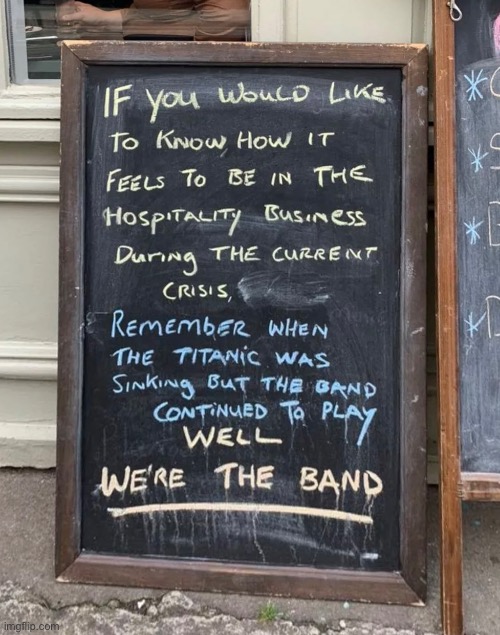 IF you WOULD LIKE
To KNOW, HOW IT
FEELS TO BE IN THE
HOSPITALITY BUSINESS
DURING THE CURRENT
CRISIS,
REMEMBER WHEN
THE TITANIC WAS
SINKING BUT THE BAND
CONTINUED To PLAY
WELL
WE'RE THE BAND
imgflip.com